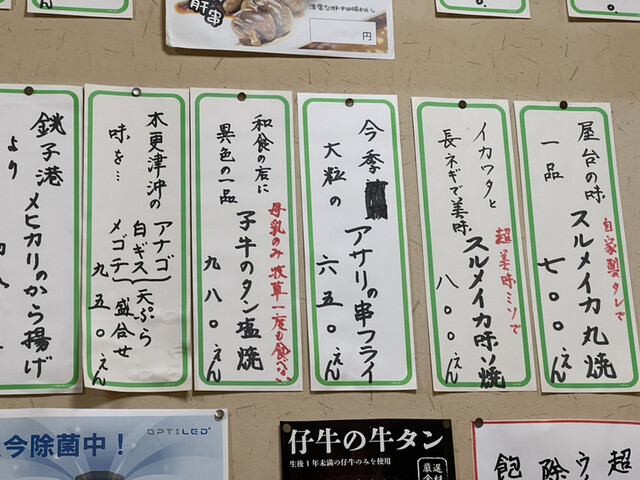 肝串
円
屋台の味
一品
自家製タレで
スルメイカ丸焼
七〇〇えん
イカワタと
長ネギで美味
超美味ミソで
スルメイカ味ソ焼
八〇〇えん
今季
大粒の
アサリの串フライ
六五〇えん
和食の店に
異色の一品
母乳のみ 牧草一度も食べない
子牛のタン塩焼
九八〇えん
木更津沖の
味を…
アナゴ
白ギス
メゴチ
天ぷら
盛合せ
九五〇えん
銚子港
より
メヒカリのから揚げ
今除菌中！
OPTILED
仔牛の牛タン
生後1年未満の仔牛のみを使用
厳選
食材
超
ウ
除
飽